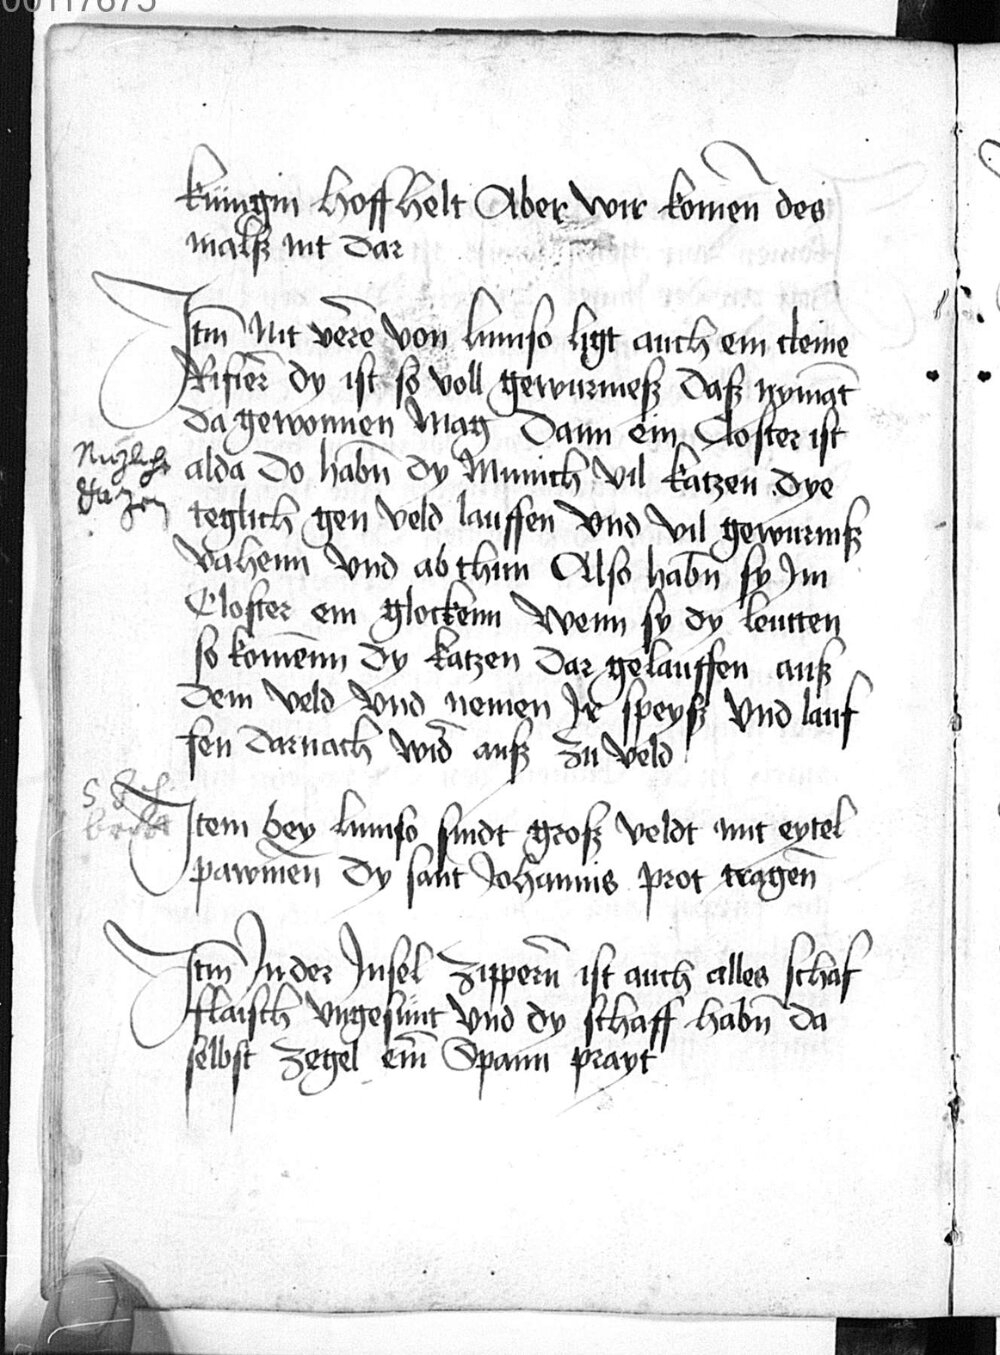 küngin hoff helt Aber wir komen des
malß nit dar
Itm Nit verre von limiso ligt auch ein cleine
Rifier dy ist so voll gewurmeß daß nymat
da gewonnen mag Dann ein Closter ist
Nuzliche
katzen
alda Do habn dy Munich vil katzen dye
teglich gen veld lauffen vnd vil gewurmß
vahenn vnd ab thun Also habn sy Im
Closter ein glockenn Wenn sy dy leutten
so komenn dy katzen dar gelauffen auß
dem veld vnd nemen Ir speyß vnd lauf
fen darnach wid auß zu veld
S Joh.
brott
Item bey limiso sindt groß veldt mit eytel
pawmen dy sant Johannis prot tragen
Itm In der Insel Zippern ist auch alles schaf
flaisch vngesunt vnd dy schaff habn da
selbst zegel eim Spann prayt